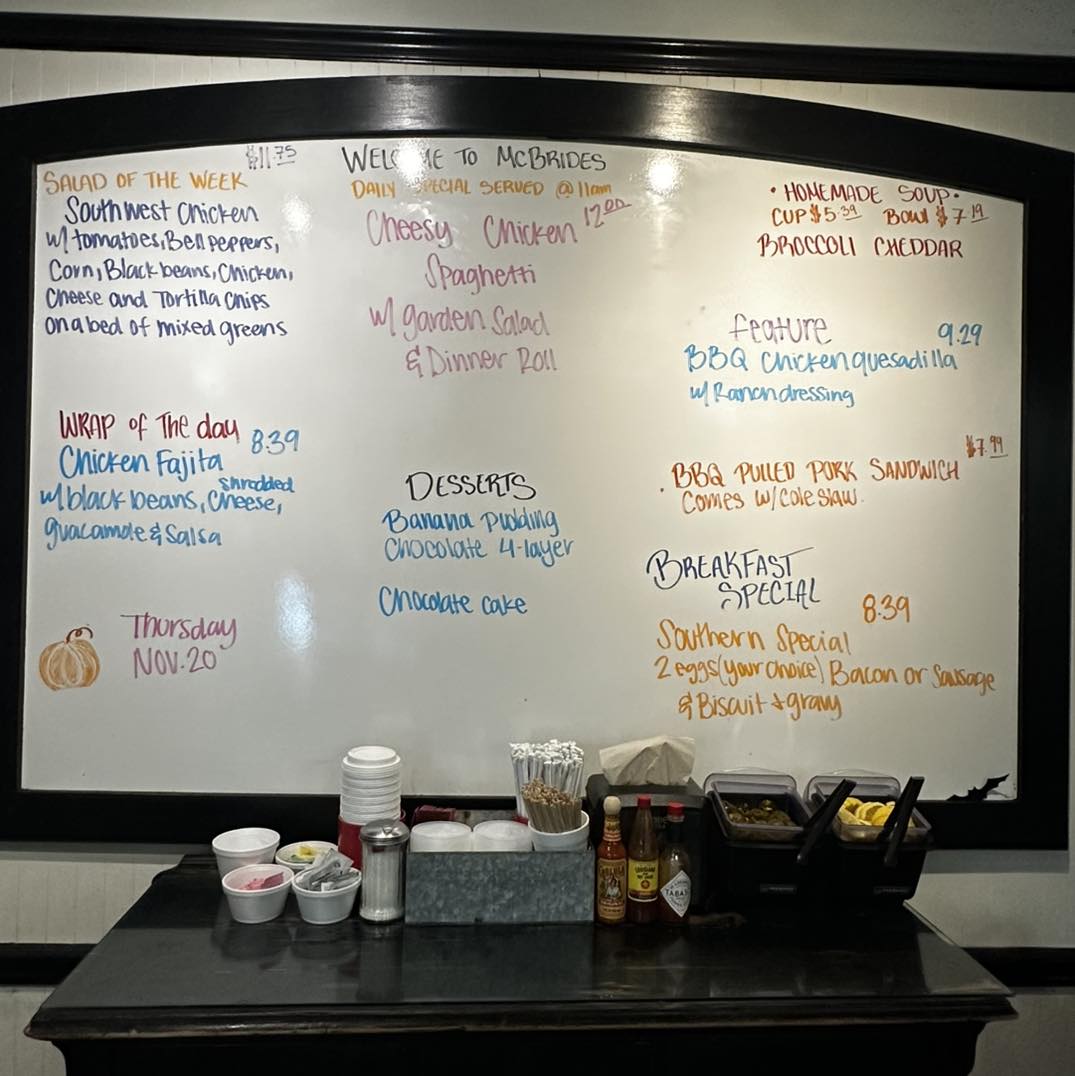 $11.75
SALAD OF THE WEEK
Southwest Chicken
w/ tomatoes, Bell peppers,
Corn, Black beans, Chicken,
Cheese and Tortilla Chips
on a bed of mixed greens
WRAP of The day 8.39
Chicken Fajita
w/ black beans, shredded Cheese,
guacamole & Salsa
Thursday
NOV. 20
WELCOME TO MCBRIDES
DAILY SPECIAL SERVED @ 11am
Cheesy Chicken 12.00
Spaghetti
w/ garden Salad
& Dinner Roll
DESSERTS
Banana Pudding
Chocolate 4-layer
Chocolate cake
• HOMEMADE SOUP •
CUP $5.39 BOWL $7.19
BROCCOLI CHEDDAR
feature 9.29
BBQ Chicken quesadilla
w/ Ranch dressing
$7.99
• BBQ PULLED PORK SANDWICH
Comes w/ cole slaw.
BREAKFAST
SPECIAL
8.39
Southern Special
2 eggs (your choice) Bacon or Sausage
& Biscuit + gravy
TABASCO